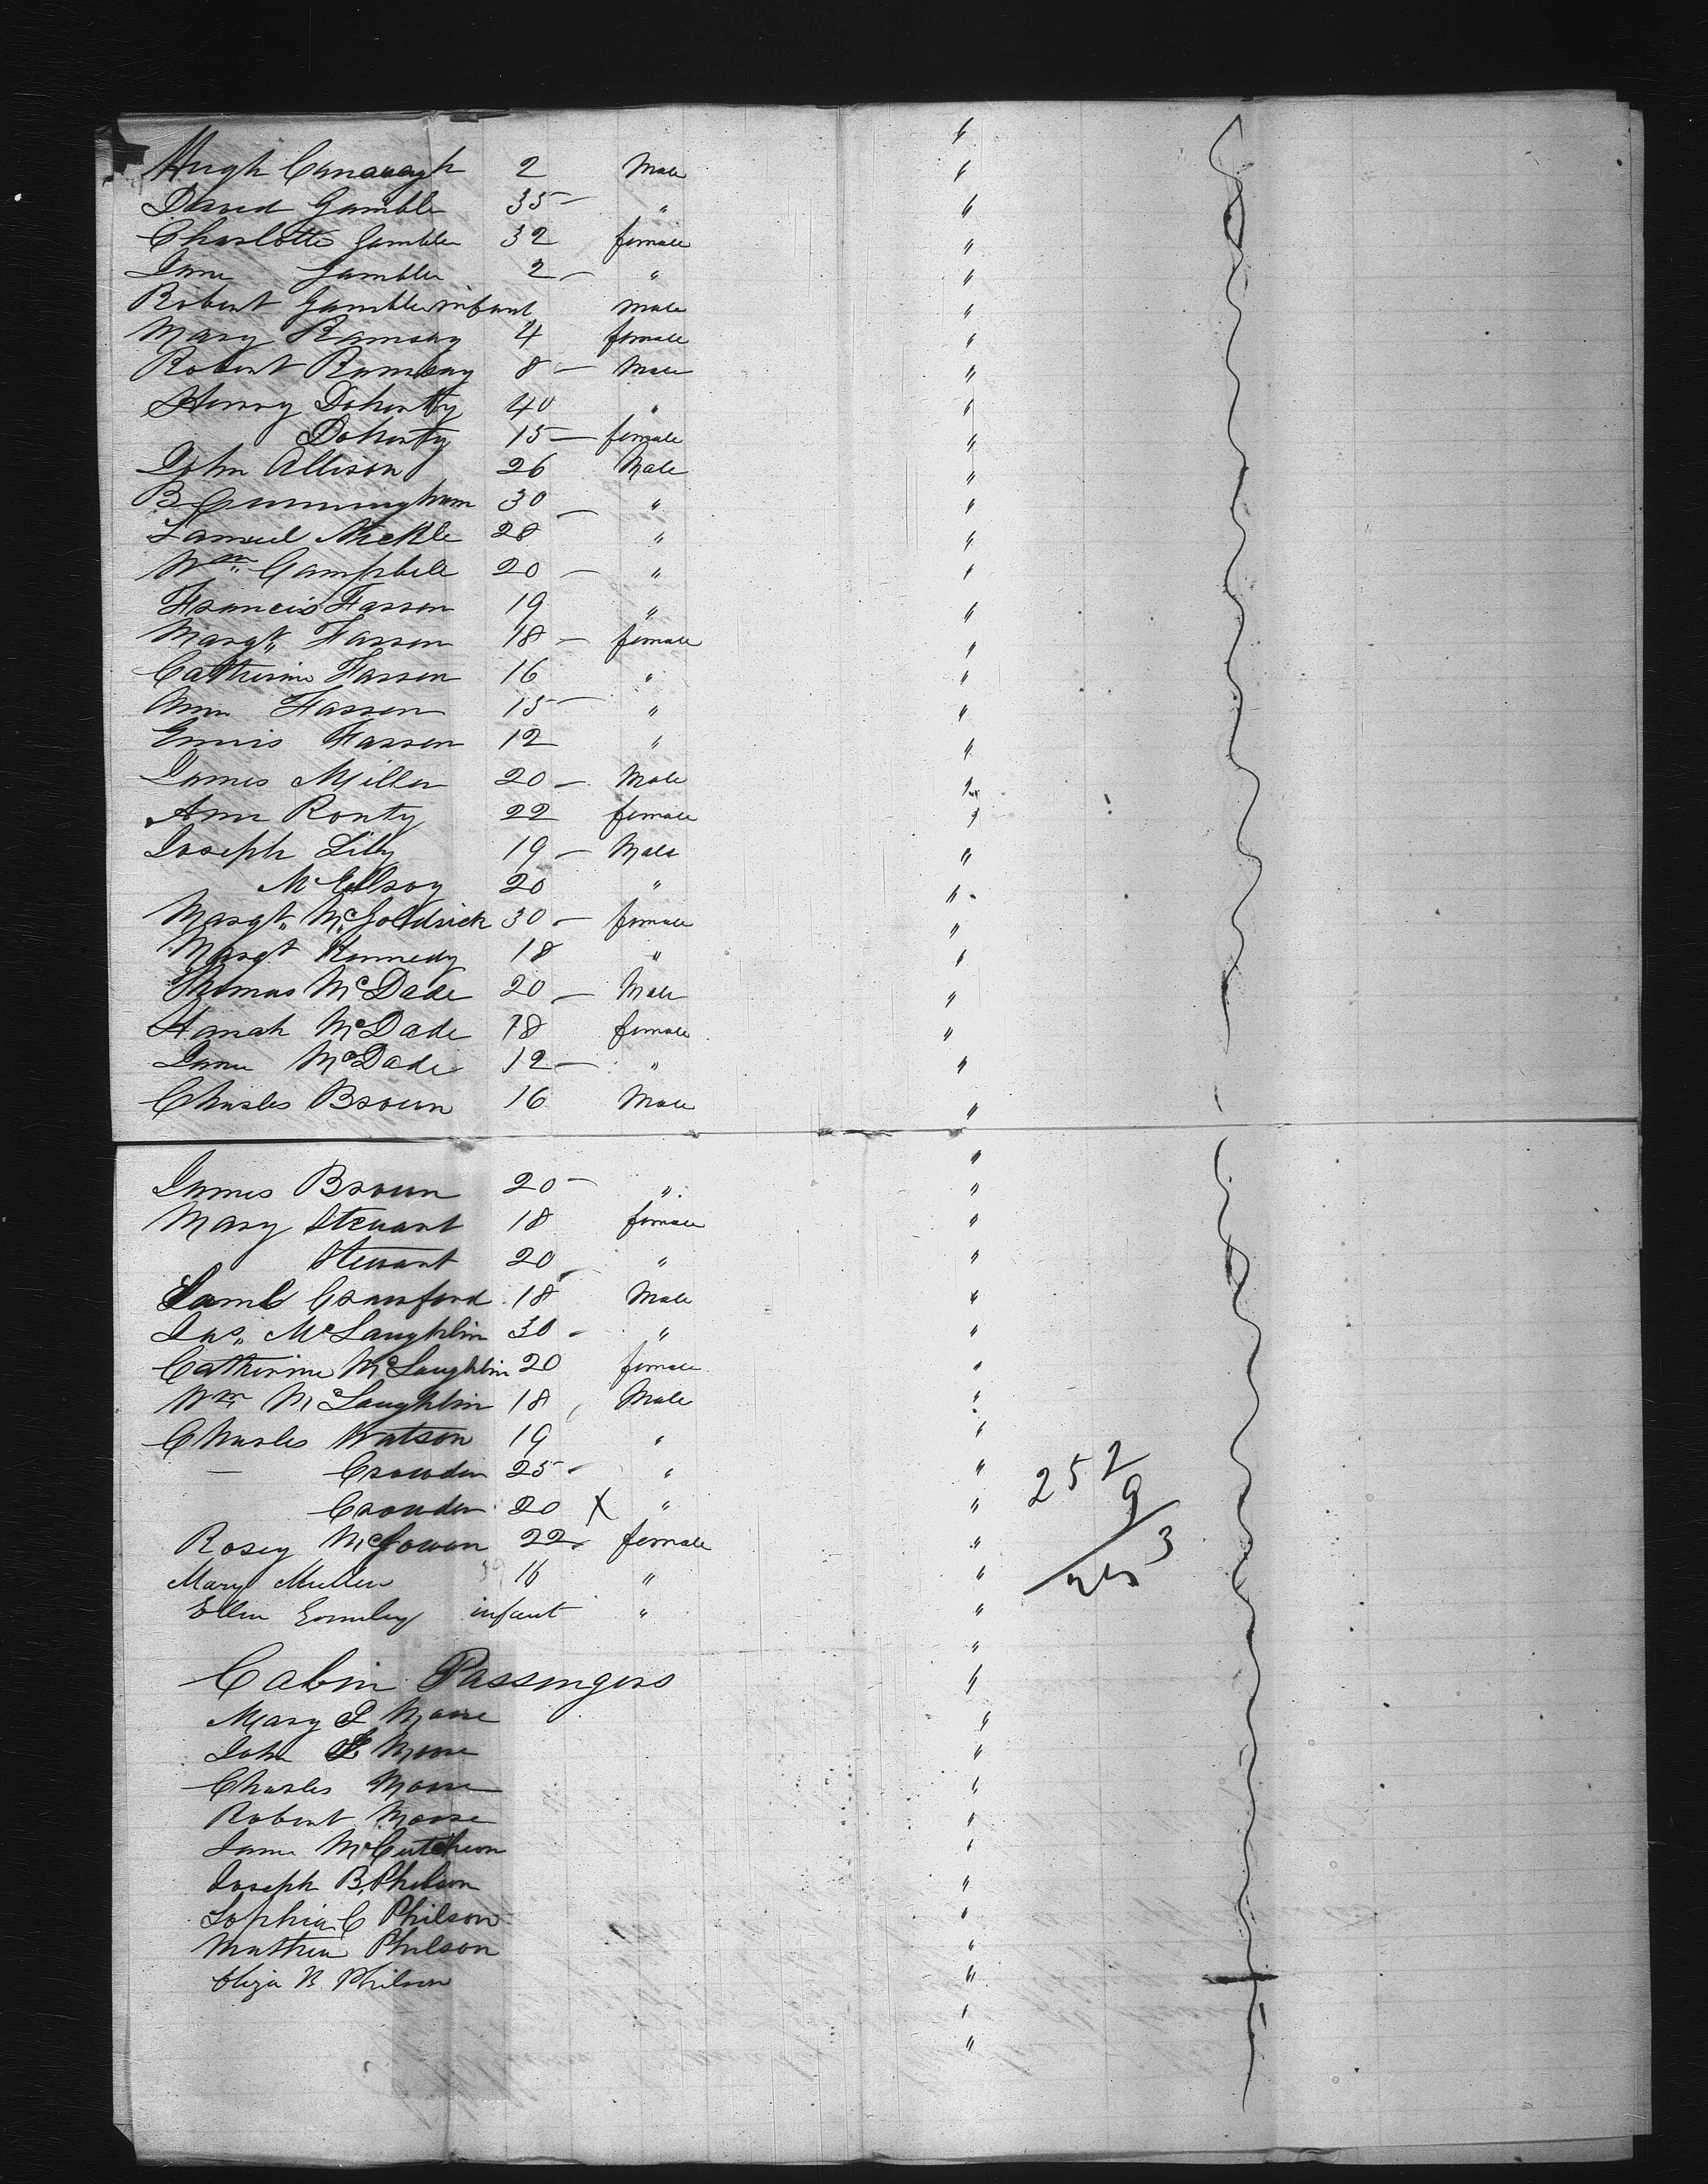 Hugh Canavagh 2 Male "
David Gamble 35 — " "
Charlotte Gamble 32 female "
Jane Gamble 2 — " "
Robert Gamble infant male "
Mary Ramsay 4 female "
Robert Ramsay 8 — Male "
Henry Doherty 40 " "
Doherty 15 — female "
John Allison 26 Male "
B Cunningham 30 — " "
Samuel Mickle 28 " "
Wm Campbell 20 — " "
Francis Farren 19 " "
Margt Farren 18 — female "
Catherine Farren 16 " "
Ann Farren 15 — " "
Farren 12 " "
James Miller 20 — Male "
Ann Ronty 22 female "
Joseph Lilly 19 — Male "
McElroy 20 " "
Margt McGoldrick 30 — female "
Margt Kennedy 18 " "
Thomas McDade 20 — Male "
Hanah McDade 18 female "
Jane McDade 12 — " "
Charles Brown 16 Male "
James Brown 20 — " "
Mary Steuart 18 female "
Steuart 20 — " "
Saml Crawford 18 Male "
Jas McLaughlin 30 - " "
Catherine McLaughlin 20 female "
Wm McLaughlin 18 Male "
Charles Watson 19 " "
— Crowden 25 - " "
Crowden 20 X " "
Rosey McGowan 22 female "
Mary Mullen 16 " "
Ellen Gormley infant " "
252
9
3
Cabin Passengers
Mary L Moore
John L Moore
Charles Moore
Robert Moore
Jane McCutcheon
Joseph B. Philson
Sophia C Philson
Philson
Eliza B. Philson